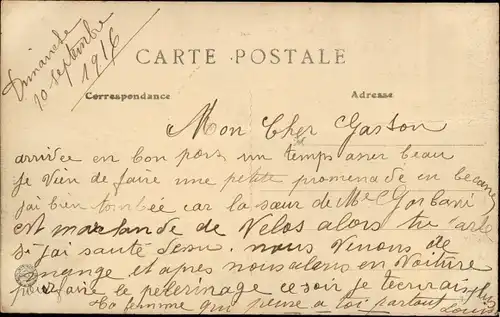 Dimanche
10 septembre
1916
CARTE POSTALE
Correspondance
Adresse
Mon Cher Gaston
arrivée en bon port un temps asser beau
je vien de faire une petite promenade en becane
j'ai bien tombée car la sœur de Me
est marchande de Velos alors tu
si j'ai sauté desu. nous venons de
mange et après nous alons en Voiture
pour faire le pelerinage ce soir je tecrirai plus
Ta femme qui pense a toi partout
Louise